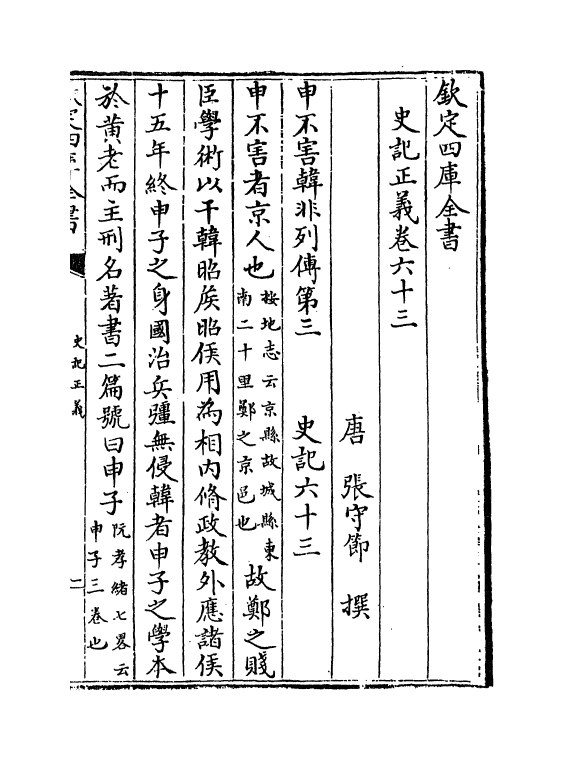 欽定四庫全書
史記正義卷六十三
唐 張守節 撰
申不害韓非列傳第三 史記六十三
申不害者京人也按地志云京縣故城縣東南二十里鄭之京邑也故鄭之賤
臣學術以干韓昭矦昭侯用為相内脩政教外應諸侯
十五年終申子之身國治兵彊無侵韓者申子之學本
於黄老而主刑名著書二篇號曰申子阮孝緒七畧云申子三卷也
欽定四庫全書
史記正義
一